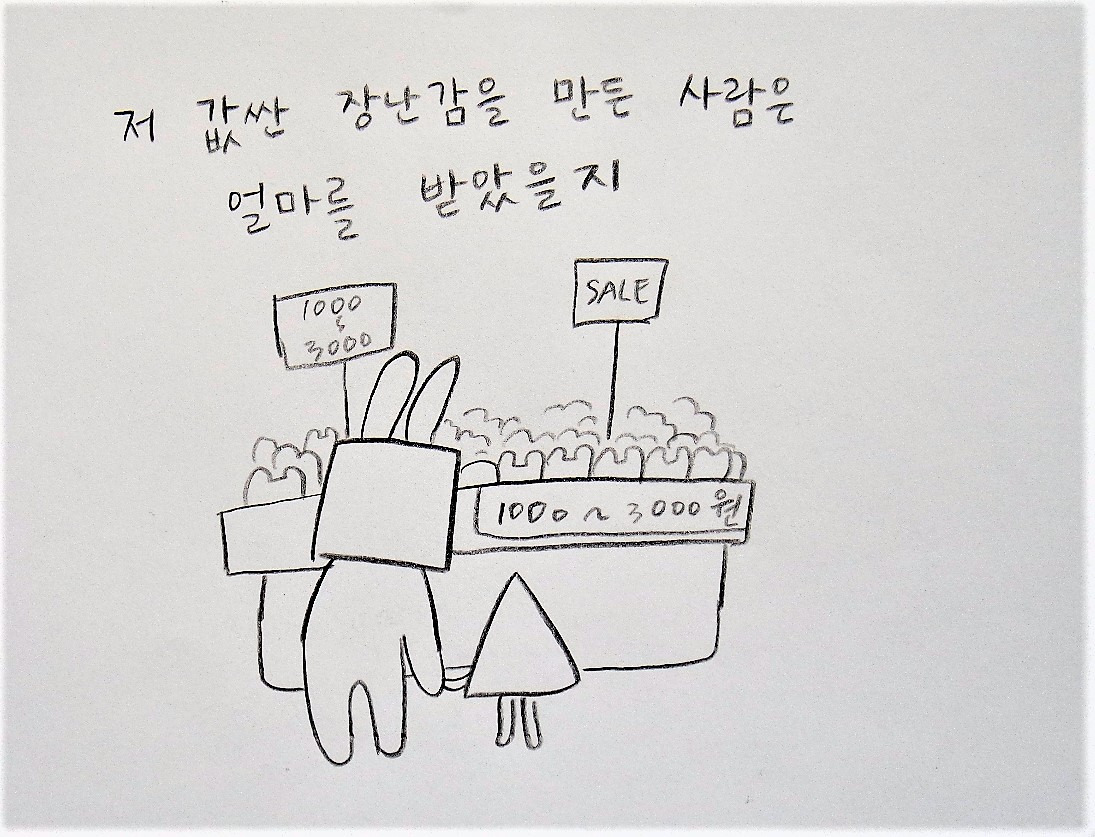 저 값싼 장난감을 만든 사람은
얼마를 받았을지
SALE
1000
~
3000
1000 ~ 3000 원